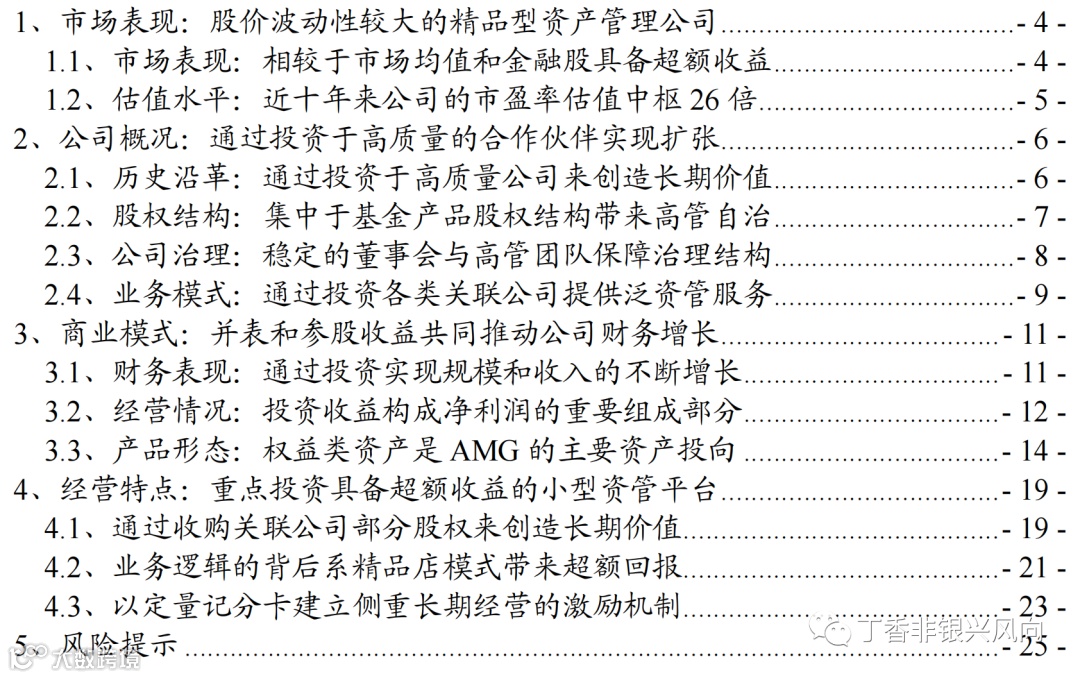 1、市场表现：股价波动性较大的精品型资产管理公司........................................- 4 -
1.1、市场表现：相较于市场均值和金融股具备超额收益................................- 4 -
1.2、估值水平：近十年来公司的市盈率估值中枢 26 倍................................- 5 -
2、公司概况：通过投资于高质量的合作伙伴实现扩张........................................- 6 -
2.1、历史沿革：通过投资于高质量公司来创造长期价值................................- 6 -
2.2、股权结构：集中于基金产品股权结构带来高管自治................................- 7 -
2.3、公司治理：稳定的董事会与高管团队保障治理结构................................- 8 -
2.4、业务模式：通过投资各类关联公司提供泛资管服务................................- 9 -
3、商业模式：并表和参股收益共同推动公司财务增长........................................- 11 -
3.1、财务表现：通过投资实现规模和收入的不断增长................................- 11 -
3.2、经营情况：投资收益构成净利润的重要组成部分................................- 12 -
3.3、产品形态：权益类资产是 AMG 的主要资产投向................................- 14 -
4、经营特点：重点投资具备超额收益的小型资管平台........................................- 19 -
4.1、通过收购关联公司部分股权来创造长期价值................................- 19 -
4.2、业务逻辑的背后系精品店模式带来超额回报................................- 21 -
4.3、以定量记分卡建立侧重长期经营的激励机制................................- 23 -
5、风险提示................................................................................- 25 -
丁香非银兴风向
大数跨境